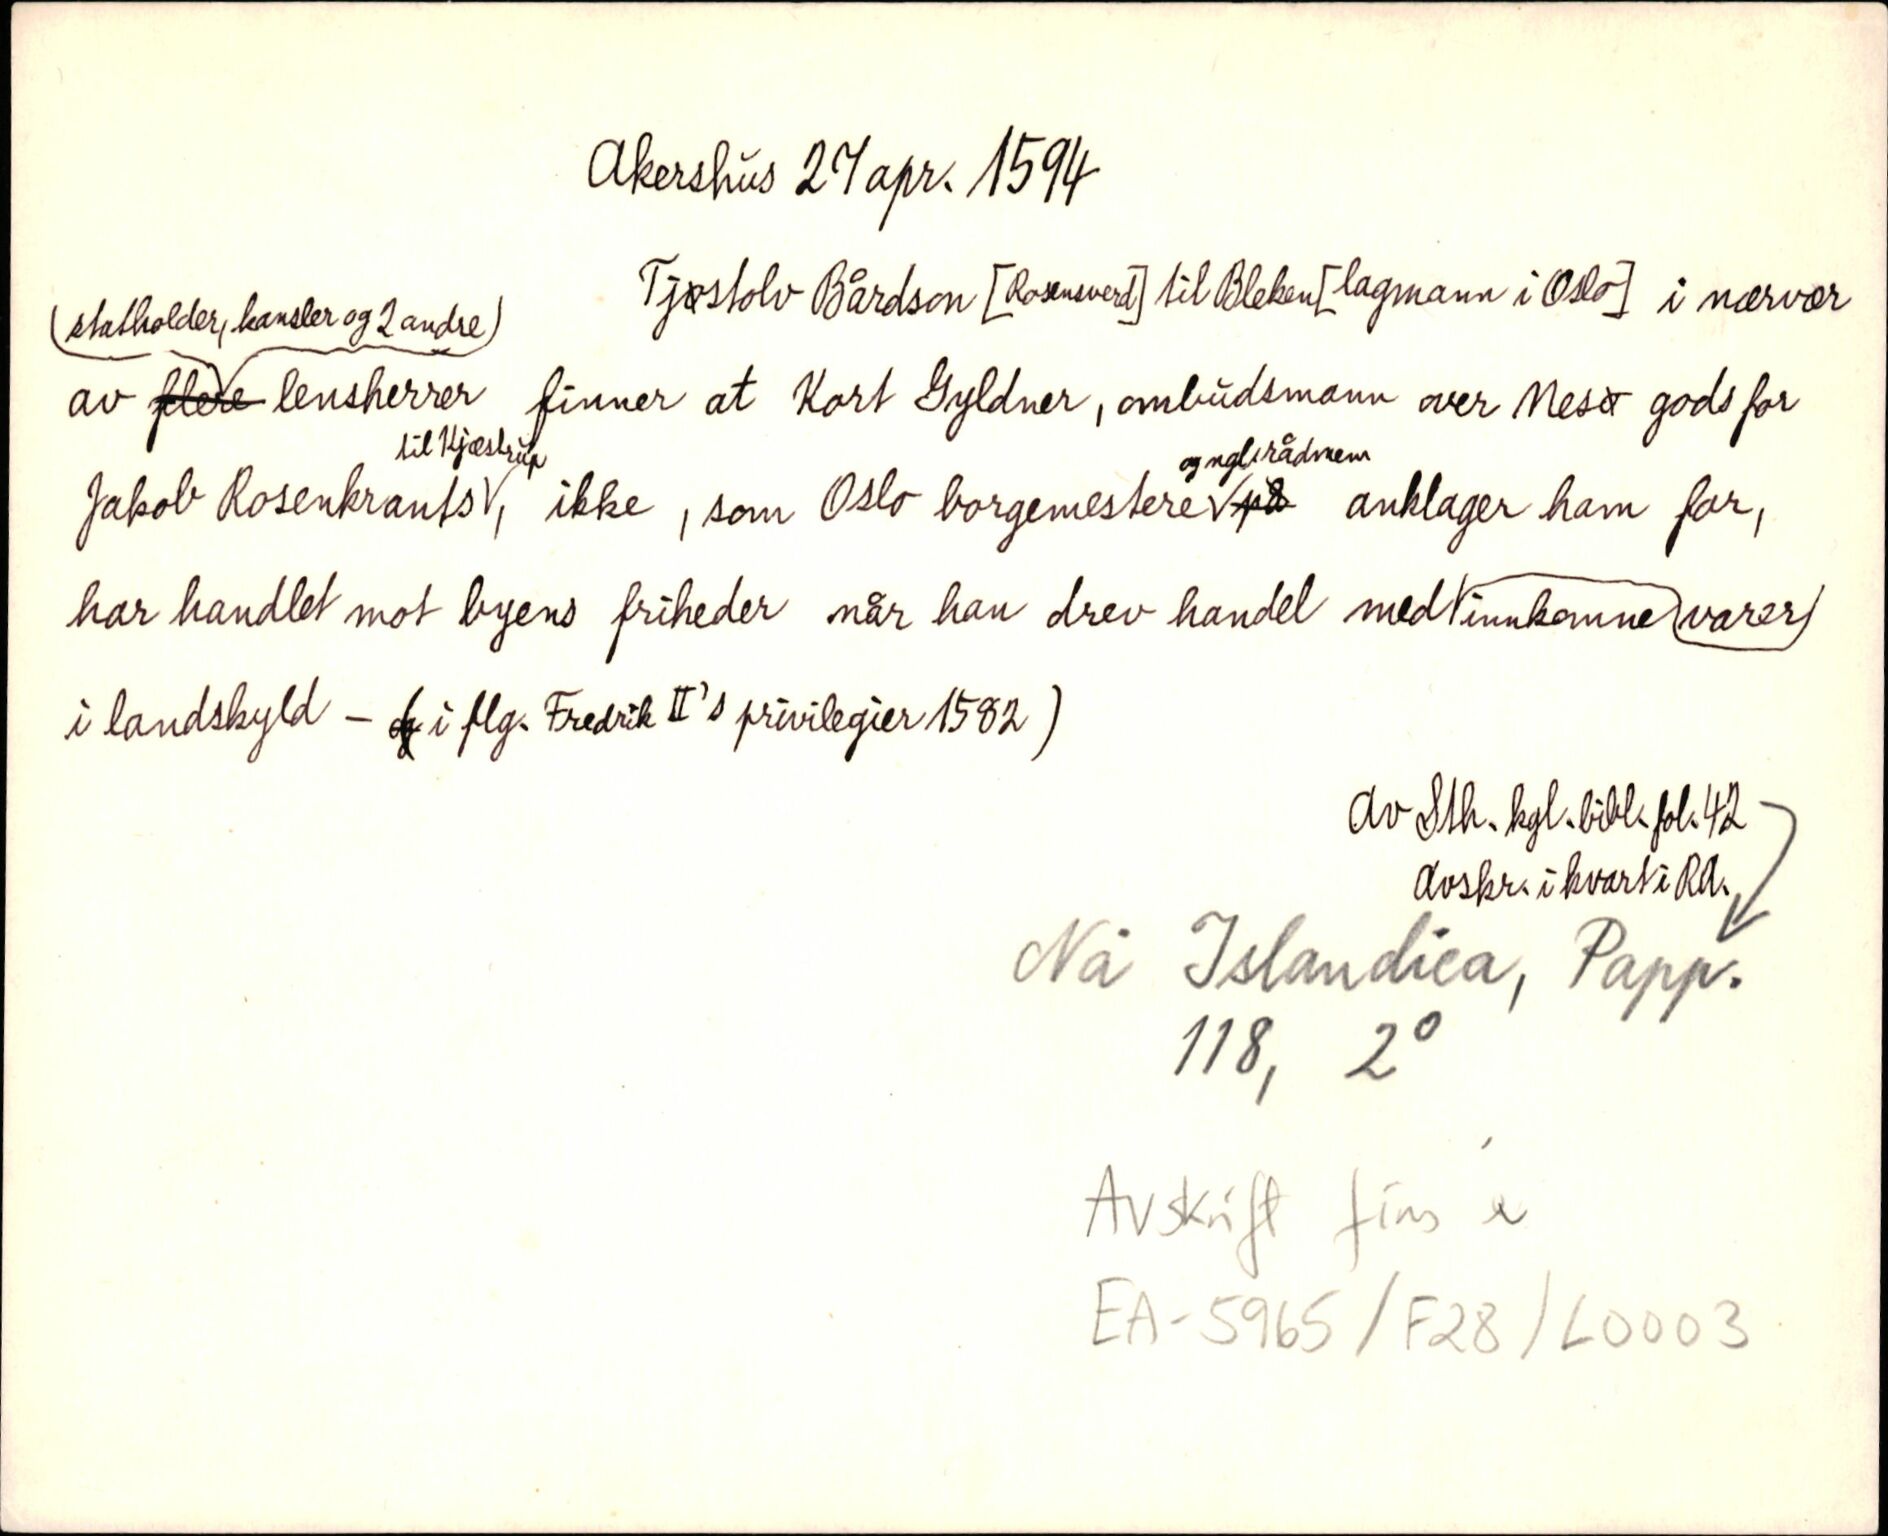 Akershus 27 apr. 1594
Tjøstolv Bårdson [Rosensverd] til Bleken [lagmann i Oslo] i nærvær
(statholder, kansler og 2 andre)
av flere lensherrer finner at Kort Gyldner, ombudsmann over Nesø gods for
til Kjæstrup
og ngl. rådmenn
Jakob Rosenkrants, ikke, som Oslo borgemestere på anklager ham for,
har handlet mot byens friheder når han drev handel med innkomne varer
i landskyld – (i flg. Fredrik II's privilegier 1582)
Av Sth. kgl. bibl. fol. 42
Avskr. i kvart i RA.
Nå Islandica, Papp.
118, 2°
Avskrift fins i
EA-5965/F28/L0003